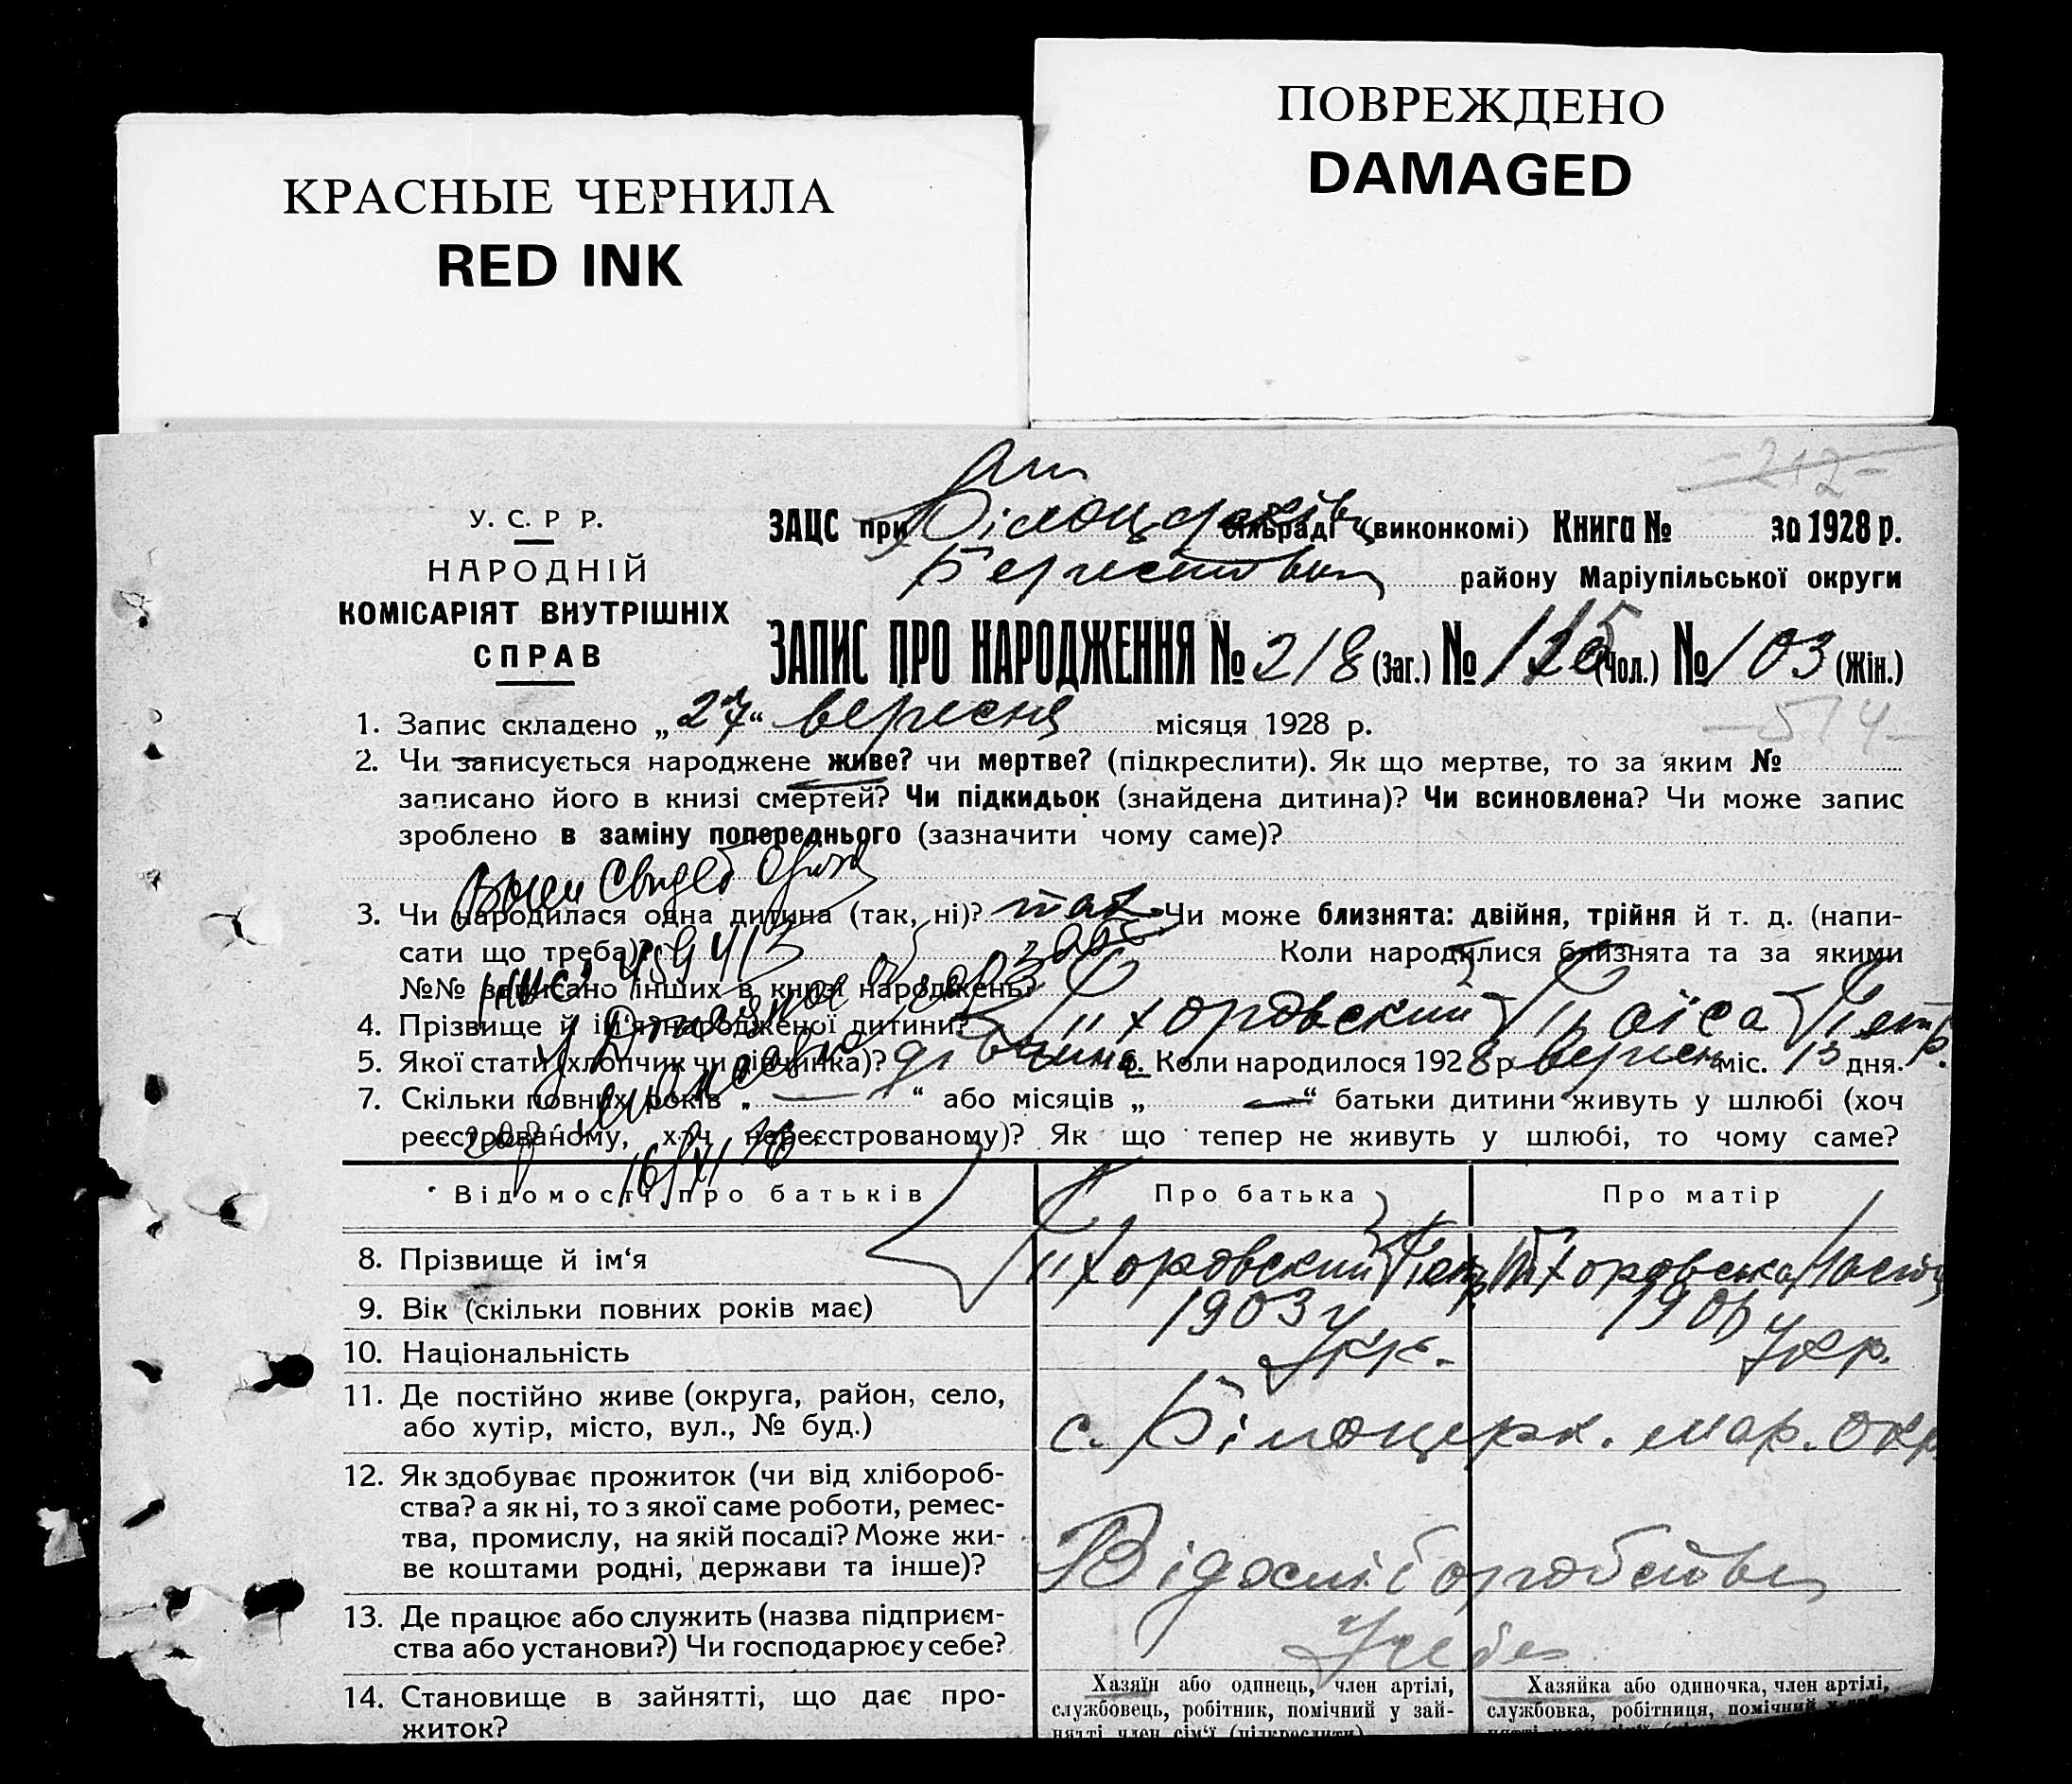 ПОВРЕЖДЕНО
DAMAGED
КРАСНЫЕ ЧЕРНИЛА
RED INK
-212-
У. С. Р Р.
НАРОДНІЙ
КОМІСАРІЯТ ВНУТРІШНІХ
СПРАВ
ЗАЦС при сільраді (виконкомі) Книга № за 1928 р.
району Маріупільської округи
ЗАПИС ПРО НАРОДЖЕННЯ № 218 (заг.) № 115 (чол.) № 103 (жін.)
1. Запис складено „27“ вересня місяця 1928 р.
-514-
2. Чи записується народжене живе? чи мертве? (підкреслити). Як що мертве, то за яким №
записано його в книзі смертей? Чи підкидьок (знайдена дитина)? Чи всиновлена? Чи може запис
зроблено в заміну попереднього (зазначити чому саме)?
3. Чи народилася одна дитина (так, ні)? так Чи може близнята: двійня, трійня й т. д. (напи-
сати що треба)? Коли народилися близнята та за якими
№№ записано інших в книзі народжень?
4. Прізвище й ім‘я народженої дитини? Тіхоровский Раїса Петр.
5. Якої стати (хлопчик чи дівчинка)? дівчина 6. Коли народилося 1928 р. вересн міс. 13 дня.
7. Скільки повних років „ — “ або місяців „ — “ батьки дитини живуть у шлюбі (хоч
реєстрованому, хоч нереєстрованому)? Як що тепер не живуть у шлюбі, то чому саме?
Відомості про батьків Про батька Про матір
8. Прізвище й ім‘я Тіхоровский Петр Тіхоровська
9. Вік (скільки повних років має) 1903 190
10. Національність Укр. Укр.
11. Де постійно живе (округа, район, село,
або хутір, місто, вул., № буд.) с. Білоцерк. мар. окр.
12. Як здобуває прожиток (чи від хлібороб-
ства? а як ні, то з якої саме роботи, ремес-
тва, промислу, на якій посаді? Може жи-
ве коштами родні, держави та інше)?
13. Де працює або служить (назва підприєм-
ства або установи?) Чи господарює у себе? У себе
14. Становище в зайнятті, що дає про-
житок?
Хазяїн або одинець, член артілі,
службовець, робітник, помічний у зай-
нятті член сім‘ї (підкреслити)
Хазяйка або одиночка, член артілі,
службовка, робітниця, помічний у